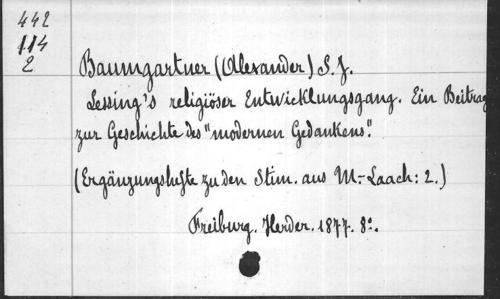 442
114
2
Baumgartner (Alexander) S. J.
Lessing's religiöser Entwicklungsgang. Ein Beitrag
zur Geschichte des "modernen Gedankens".
(Ergänzungshefte zu den Stim. aus M.-Laach: 2.)
Freiburg. Herder. 1877. 8°.